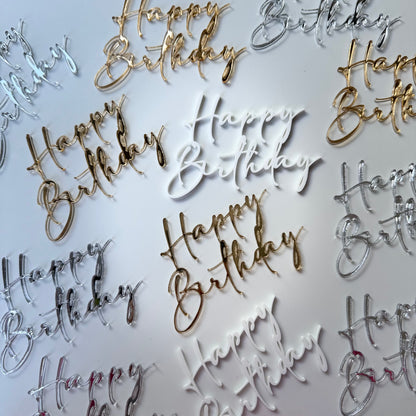 Happy
Birthday
Happy
Birthday
Happy
Birthday
Happy
Birthday
Happy
Birthday
Happy
Birthday
Happy
Birthday
Happy
Birthday
Happy
Birthday
Happy
Birthday
Happy